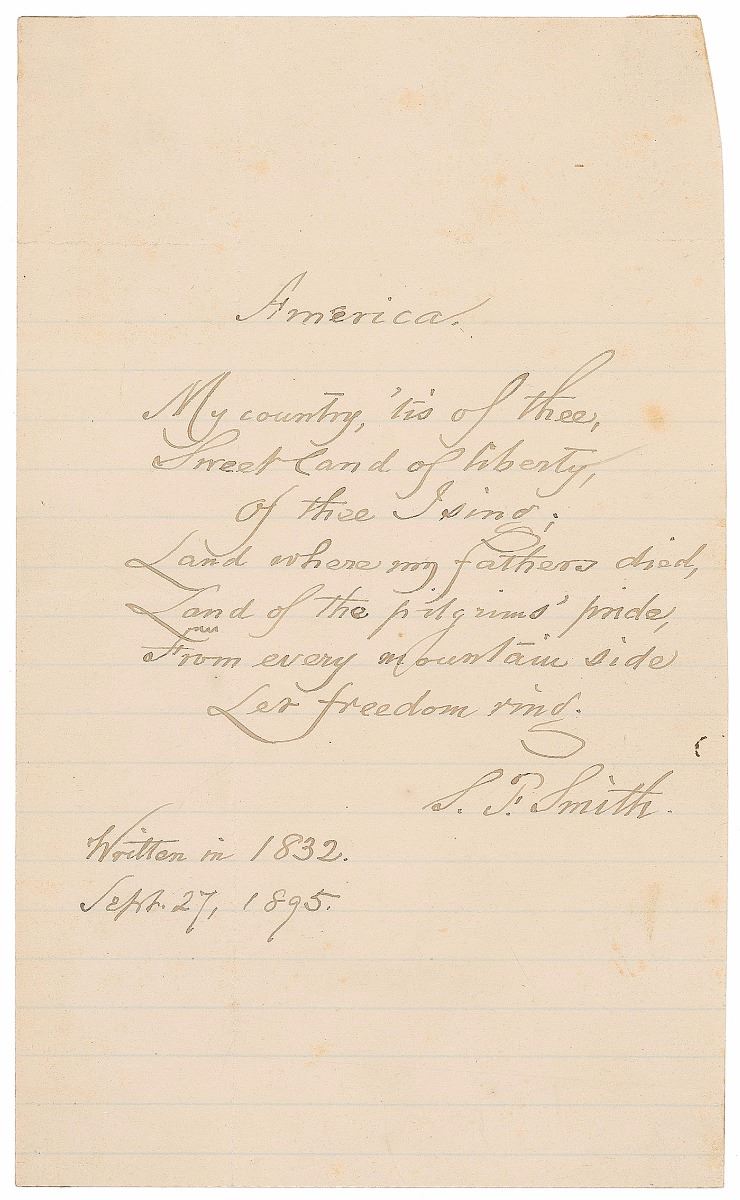 America.
My country, 'tis of thee,
Sweet land of liberty,
Of thee I sing;
Land where my fathers died,
Land of the pilgrims' pride,
From every mountain side
Let freedom ring.
S. F. Smith.
Written in 1832.
Sept. 27, 1895.